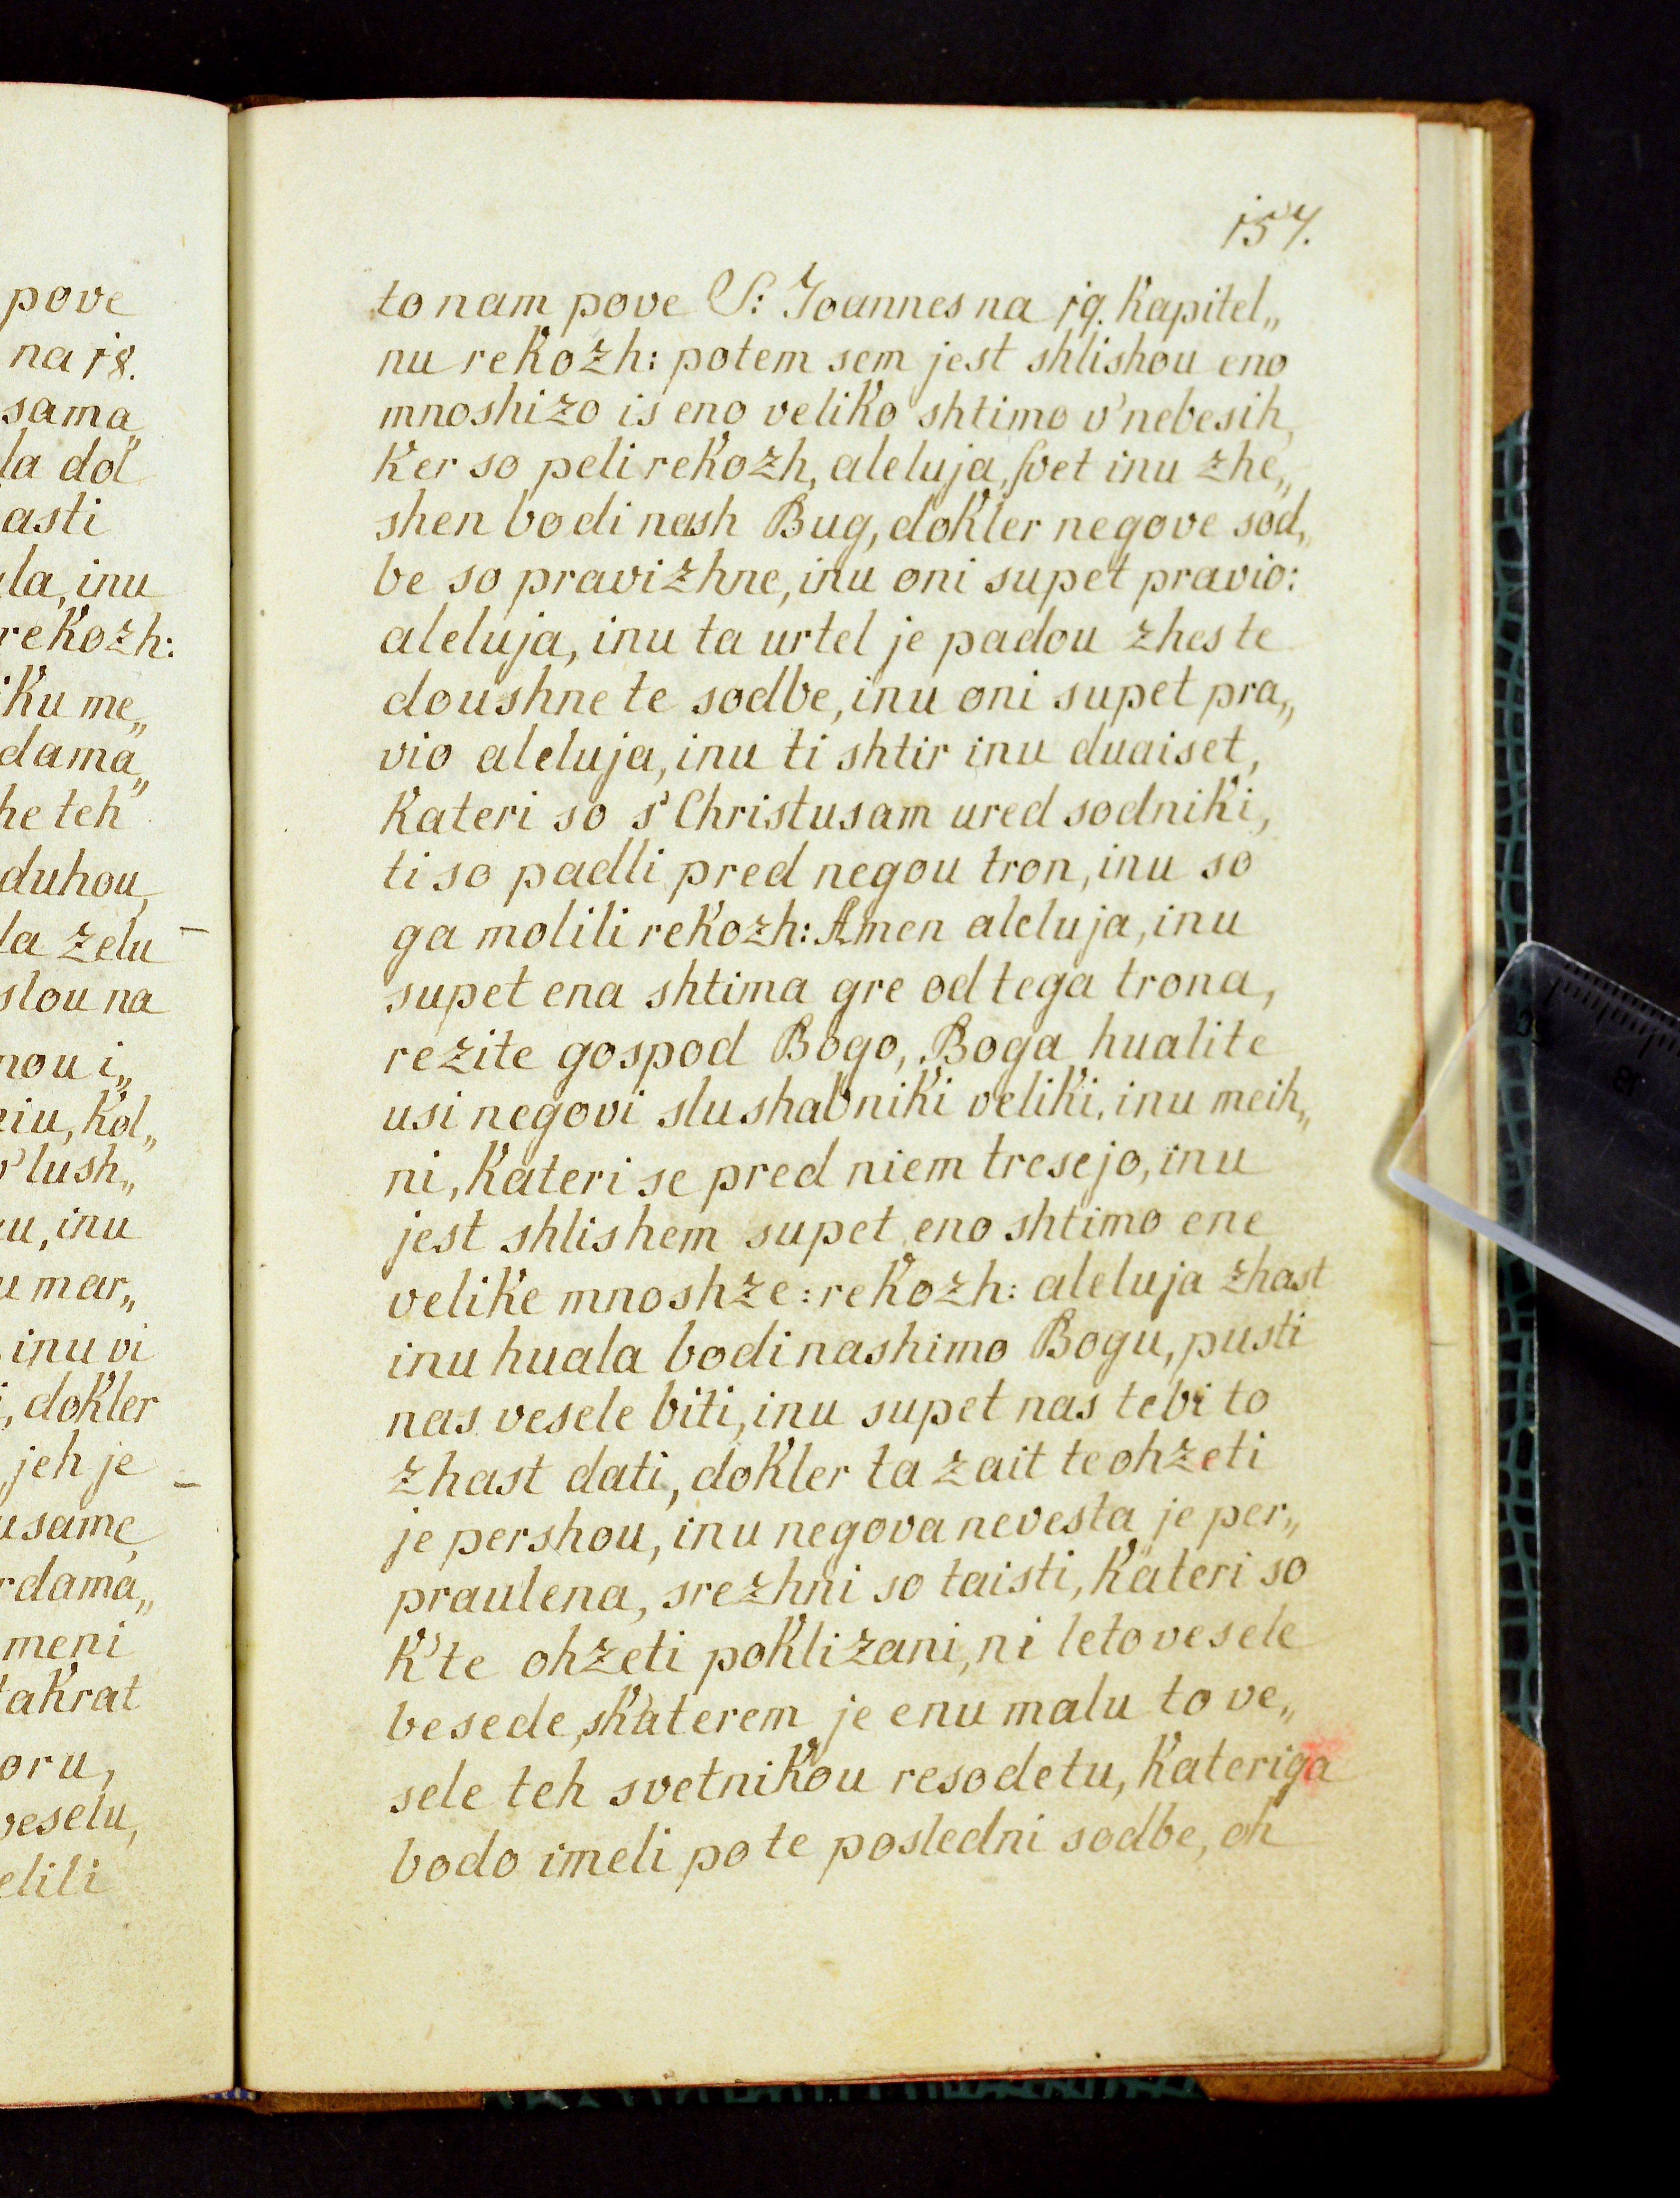 pove
na 18.
sama„
la dol
asti
la, inu
rekozh:
iku me„
dama„
he teh
duhou,
la zelu
slou na
nou i„
eiu, kol„
v'lush„
u, inu
u mar„
inu vi
i, dokler
jeh je
usame,
rdama„
meni
takrat
oru,
veselu,
elili
157.
to nam pove S: Joannes na 19. kapitel„
nu rekozh: potem sem jest shlishou eno
mnoshizo is eno veliko shtimo v'nebesih,
ker so peli rekozh, aleluja, svet inu zhe„
shen bodi nash Bug, dokler negove sod„
be so pravizhne, inu oni supet pravio:
aleluja, inu ta urtel je padou zhes te
doushne te sodbe, inu oni supet pra„
vio aleluja, inu ti shtir inu duaiset,
kateri so s'Christusam ured sodniki,
ti so padli pred negou tron, inu so
ga molili rekozh: Amen aleluja, inu
supet ena shtima gre od tega trona,
rezite gospod Bogo, Boga hualite
usi negovi slushabniki veliki, inu meih„
ni, kateri se pred niem tresejo, inu
jest shlishem supet eno shtimo ene
velike mnoshze: rekozh: aleluja zhast
inu huala bodi nashimo Bogu, pusti
nas vesele biti, inu supet nas tebi to
zhast dati, dokler ta zait te ohzeti
je pershou, inu negova nevesta je per„
praulena, srezhni so taisti, kateri so
k'te ohzeti poklizani, ni leto vesele
besede, skaterem je enu malu to ve„
sele teh svetnikou resodetu, kateriga
bodo imeli po te posledni sodbe, oh